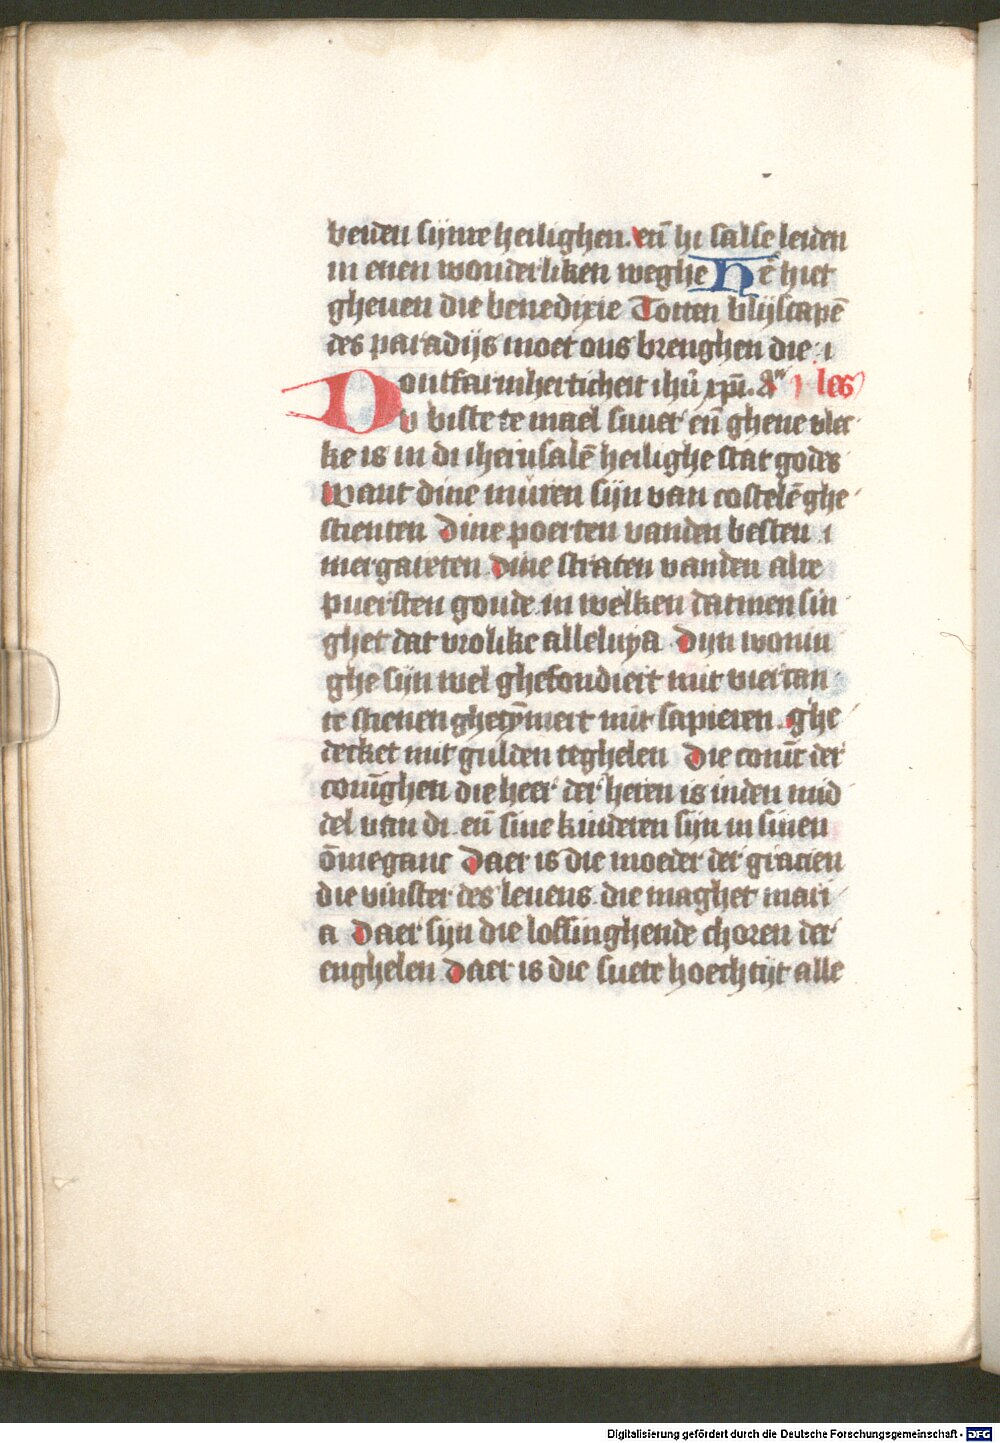 beiden sijnre heilighen. eñ hi salse leiden
in enen wonderliken weghe Hẽ hiet
gheuen die benedixie Totten blijscapẽ
des paradijs moet ons brenghen die i
ontfarmherticheit ihũ xpĩ. Am̃ j les
Dv biste te mael suuer eñ ghene vlec
ke is in di iherusalẽ heilighe stat godes
want dine muren sijn van costelẽ ghe
stienten Dine poerten vanden besten i
mergarieten Dine straten vanden alre
puersten goude in welken datmen sin
ghet dat vrolike alleluya Dijn wonin
ghe sijn wel ghefondiert mit viercan
te stienen ghetỹmert mit sapieren ghe
decket mit gulden teghelen Die conĩc der
conĩghen die heer der heren is inden mid
del van di eñ sine kinderen sijn in sinen
õmeganc Daer is die moeder der gracien
die vinster des leuens die maghet mari
a Daer sijn die lofsinghende choren der
enghelen Daer is die suete hoechtijt alle
Digitalisierung gefördert durch die Deutsche Forschungsgemeinschaft - DFG